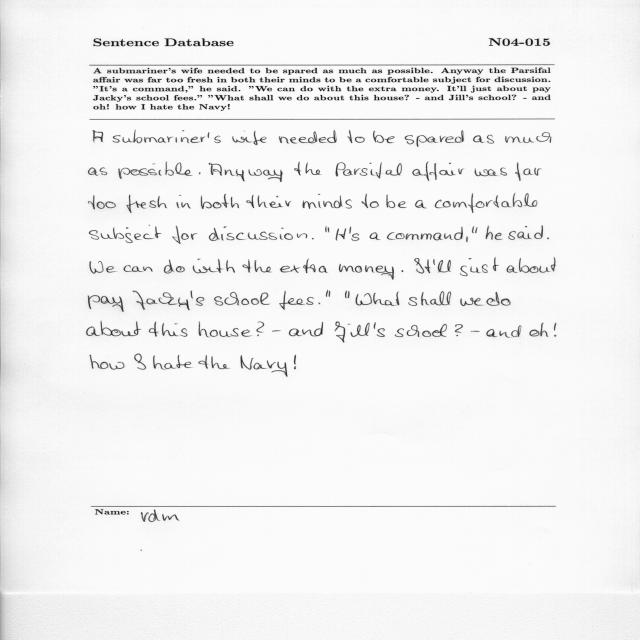 Sentence Database N04-015
A submariner's wife needed to be spared as much as possible. Anyway the Parsifal
affair was far too fresh in both their minds to be a comfortable subject for discussion.
"It's a command," he said. "We can do with the extra money. It'll just about pay
Jacky's school fees." "What shall we do about this house? - and Jill's school? - and
oh! how I hate the Navy!
A submariner's wife needed to be spared as much
as possible. Anyway the Parsifal affair was far
too fresh in both their minds to be a comfortable
subject for discussion. "It's a command," he said.
We can do with the extra money. It'll just about
pay Jacky's school fees." "What shall we do
about this house? - and Jill's school? - and oh!
how I hate the Navy!
Name: vdm